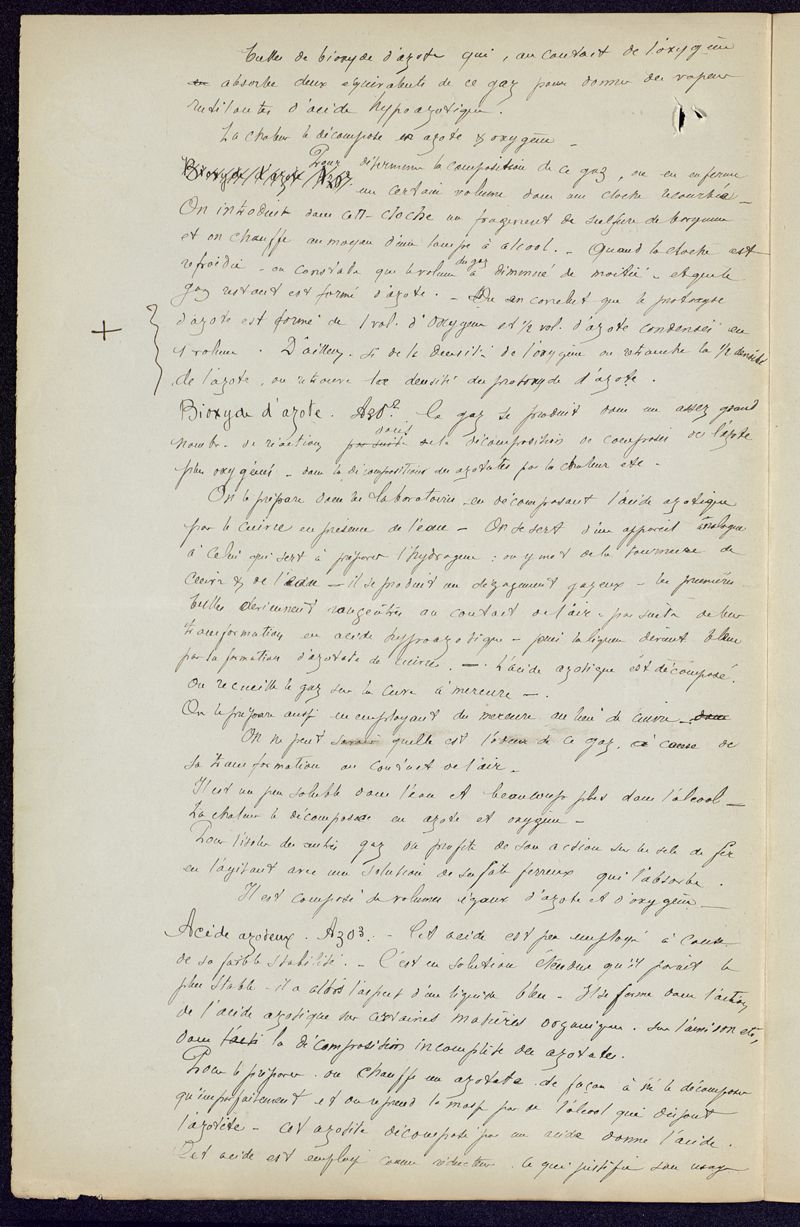 bulles de bioxyde d'azote qui, au contact de l'oxygène
absorbe deux équivalents de ce gaz pour donner des vapeurs
rutilantes d'acide hypoazotique.
La chaleur le décompose en azote & oxygène -
Bioxyde d'azote AzO². Pour déterminer la composition de ce gaz, on en enferme
un certain volume dans une cloche recourbée -
On introduit dans cette cloche un fragment de sulfure de baryum
et on chauffe au moyen d'une lampe à alcool. - Quand la cloche est
refroidie - on constate que le volume du gaz a diminué de moitié - et que le
gaz restant est formé d'azote. - On en conclut que le protoxyde
+ d'azote est formé de 1 vol. d'oxygène et ½ vol. d'azote condensés en
1 volume. D'ailleurs, si de la densité de l'oxygène on retranche la ½ densité
de l'azote, on retrouve la densité du protoxyde d'azote.
Bioxyde d'azote. AzO². Ce gaz se produit dans un assez grand
nomb. de réactions par suite dans de la décomposition de composés de l'azote
plus oxygénés - dans la décomposition des azotates par la chaleur etc -
On le prépare dans les laboratoires en décomposant l'acide azotique
par le cuivre en présence de l'eau - On se sert d'un appareil analogue
à celui qui sert à préparer l'hydrogène : on y met de la tournure de
cuivre & de l'eau - il se produit un dégagement gazeux - les premières
bulles deviennent rougeâtres au contact de l'air - par suite de leur
transformation en acide hypoazotique - puis la liqueur devient bleue
par la formation d'azotate de cuivre. -. L'acide azotique est décomposé.
On recueille le gaz sur la cuve à mercure -.
On le prépare aussi en employant du mercure au lieu de cuivre - dans
On ne peut savoir quelle est l'odeur de ce gaz, à cause de
sa transformation au contact de l'air -
Il est un peu soluble dans l'eau et beaucoup plus dans l'alcool -
La chaleur le décompose en azote et oxygène -
Pour l'isoler des autres gaz on profite de son action sur les sels de fer
en l'agitant avec une solution de sulfate ferreux qui l'absorbe.
Il est composé de volumes égaux d'azote et d'oxygène -
Acide azoteux. AzO3. - Cet acide est peu employé à cause
de sa faible stabilité. - C'est en solution étendue qu'il paraît le
plus stable - il a alors l'aspect d'un liquide bleu - Il se forme dans l'action
de l'acide azotique sur certaines matières organiques. sur l'amidon etc,
dans la décomposition incomplète des azotates.
Pour le préparer on chauffe un azotate de façon à ne le décomposer
qu'imparfaitement et on reprend la masse par de l'alcool qui dissout
l'azotite - cet azotite décomposé par un acide donne l'acide.
Cet acide est employé comme réducteur - ce qui justifie son usage